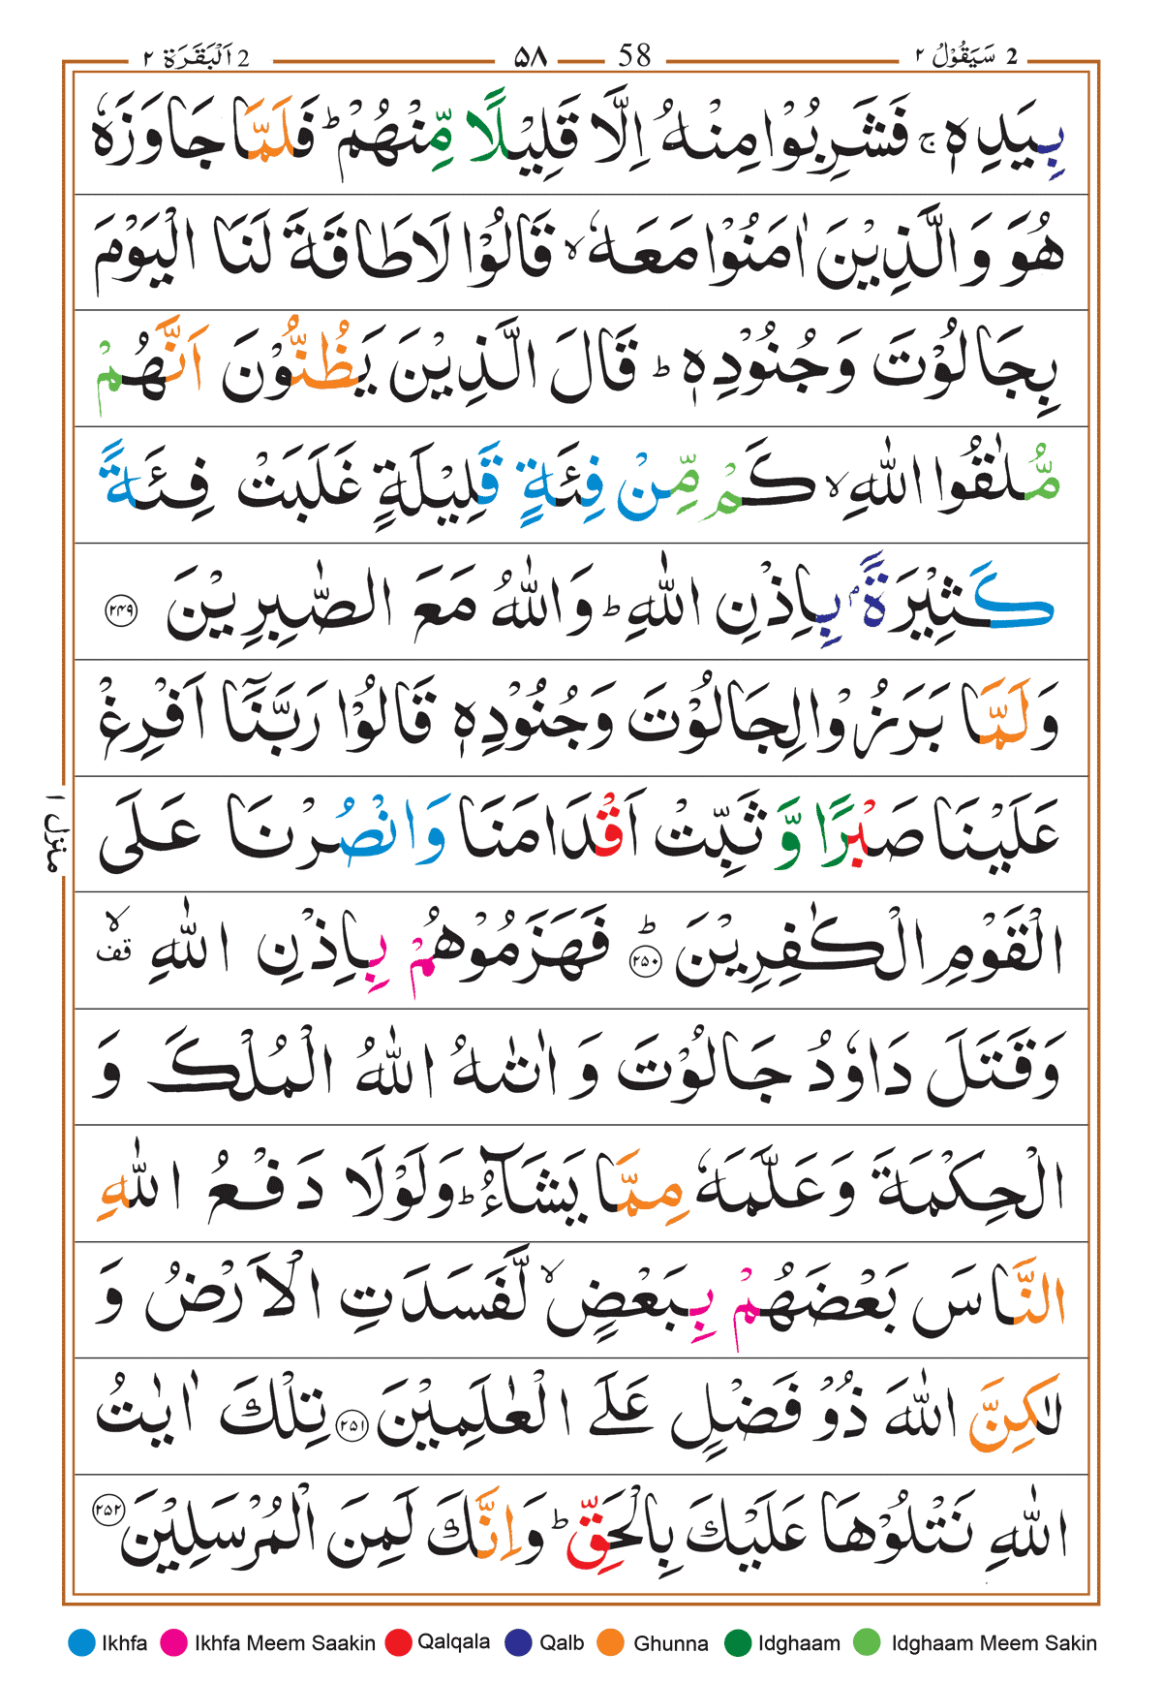 2 اَلْبَقَرَة ٢ ۵۸ 58 2 سَيَقُوْلُ ٢
بِيَدِهٖ ۚ فَشَرِبُوْا مِنْهُ اِلَّا قَلِيْلًا مِّنْهُمْ ؕ فَلَمَّا جَاوَزَهٗ
هُوَ وَالَّذِيْنَ اٰمَنُوْا مَعَهٗ ۙ قَالُوْا لَا طَاقَةَ لَنَا الْيَوْمَ
بِجَالُوْتَ وَجُنُوْدِهٖ ؕ قَالَ الَّذِيْنَ يَظُنُّوْنَ اَنَّهُمْ
مُّلٰقُوا اللّٰهِ ۙ كَمْ مِّنْ فِئَةٍ قَلِيْلَةٍ غَلَبَتْ فِئَةً
كَثِيْرَةًۢ بِاِذْنِ اللّٰهِ ؕ وَاللّٰهُ مَعَ الصّٰبِرِيْنَ ۲۴۹
وَلَمَّا بَرَزُوْا لِجَالُوْتَ وَجُنُوْدِهٖ قَالُوْا رَبَّنَاۤ اَفْرِغْ
عَلَيْنَا صَبْرًا وَّ ثَبِّتْ اَقْدَامَنَا وَانْصُرْنَا عَلَى
الْقَوْمِ الْكٰفِرِيْنَ ؕ ۲۵۰ فَهَزَمُوْهُمْ بِاِذْنِ اللّٰهِ ۙ قف
وَقَتَلَ دَاوٗدُ جَالُوْتَ وَ اٰتٰىهُ اللّٰهُ الْمُلْكَ وَ
الْحِكْمَةَ وَعَلَّمَهٗ مِمَّا يَشَآءُ ؕ وَلَوْلَا دَفْعُ اللّٰهِ
النَّاسَ بَعْضَهُمْ بِبَعْضٍ ۙ لَّفَسَدَتِ الْاَرْضُ وَ
لٰكِنَّ اللّٰهَ ذُوْ فَضْلٍ عَلَى الْعٰلَمِيْنَ ۲۵۱ تِلْكَ اٰيٰتُ
اللّٰهِ نَتْلُوْهَا عَلَيْكَ بِالْحَقِّ ؕ وَاِنَّكَ لَمِنَ الْمُرْسَلِيْنَ ۲۵۲
منزل ١
Ikhfa Ikhfa Meem Saakin Qalqala Qalb Ghunna Idghaam Idghaam Meem Sakin